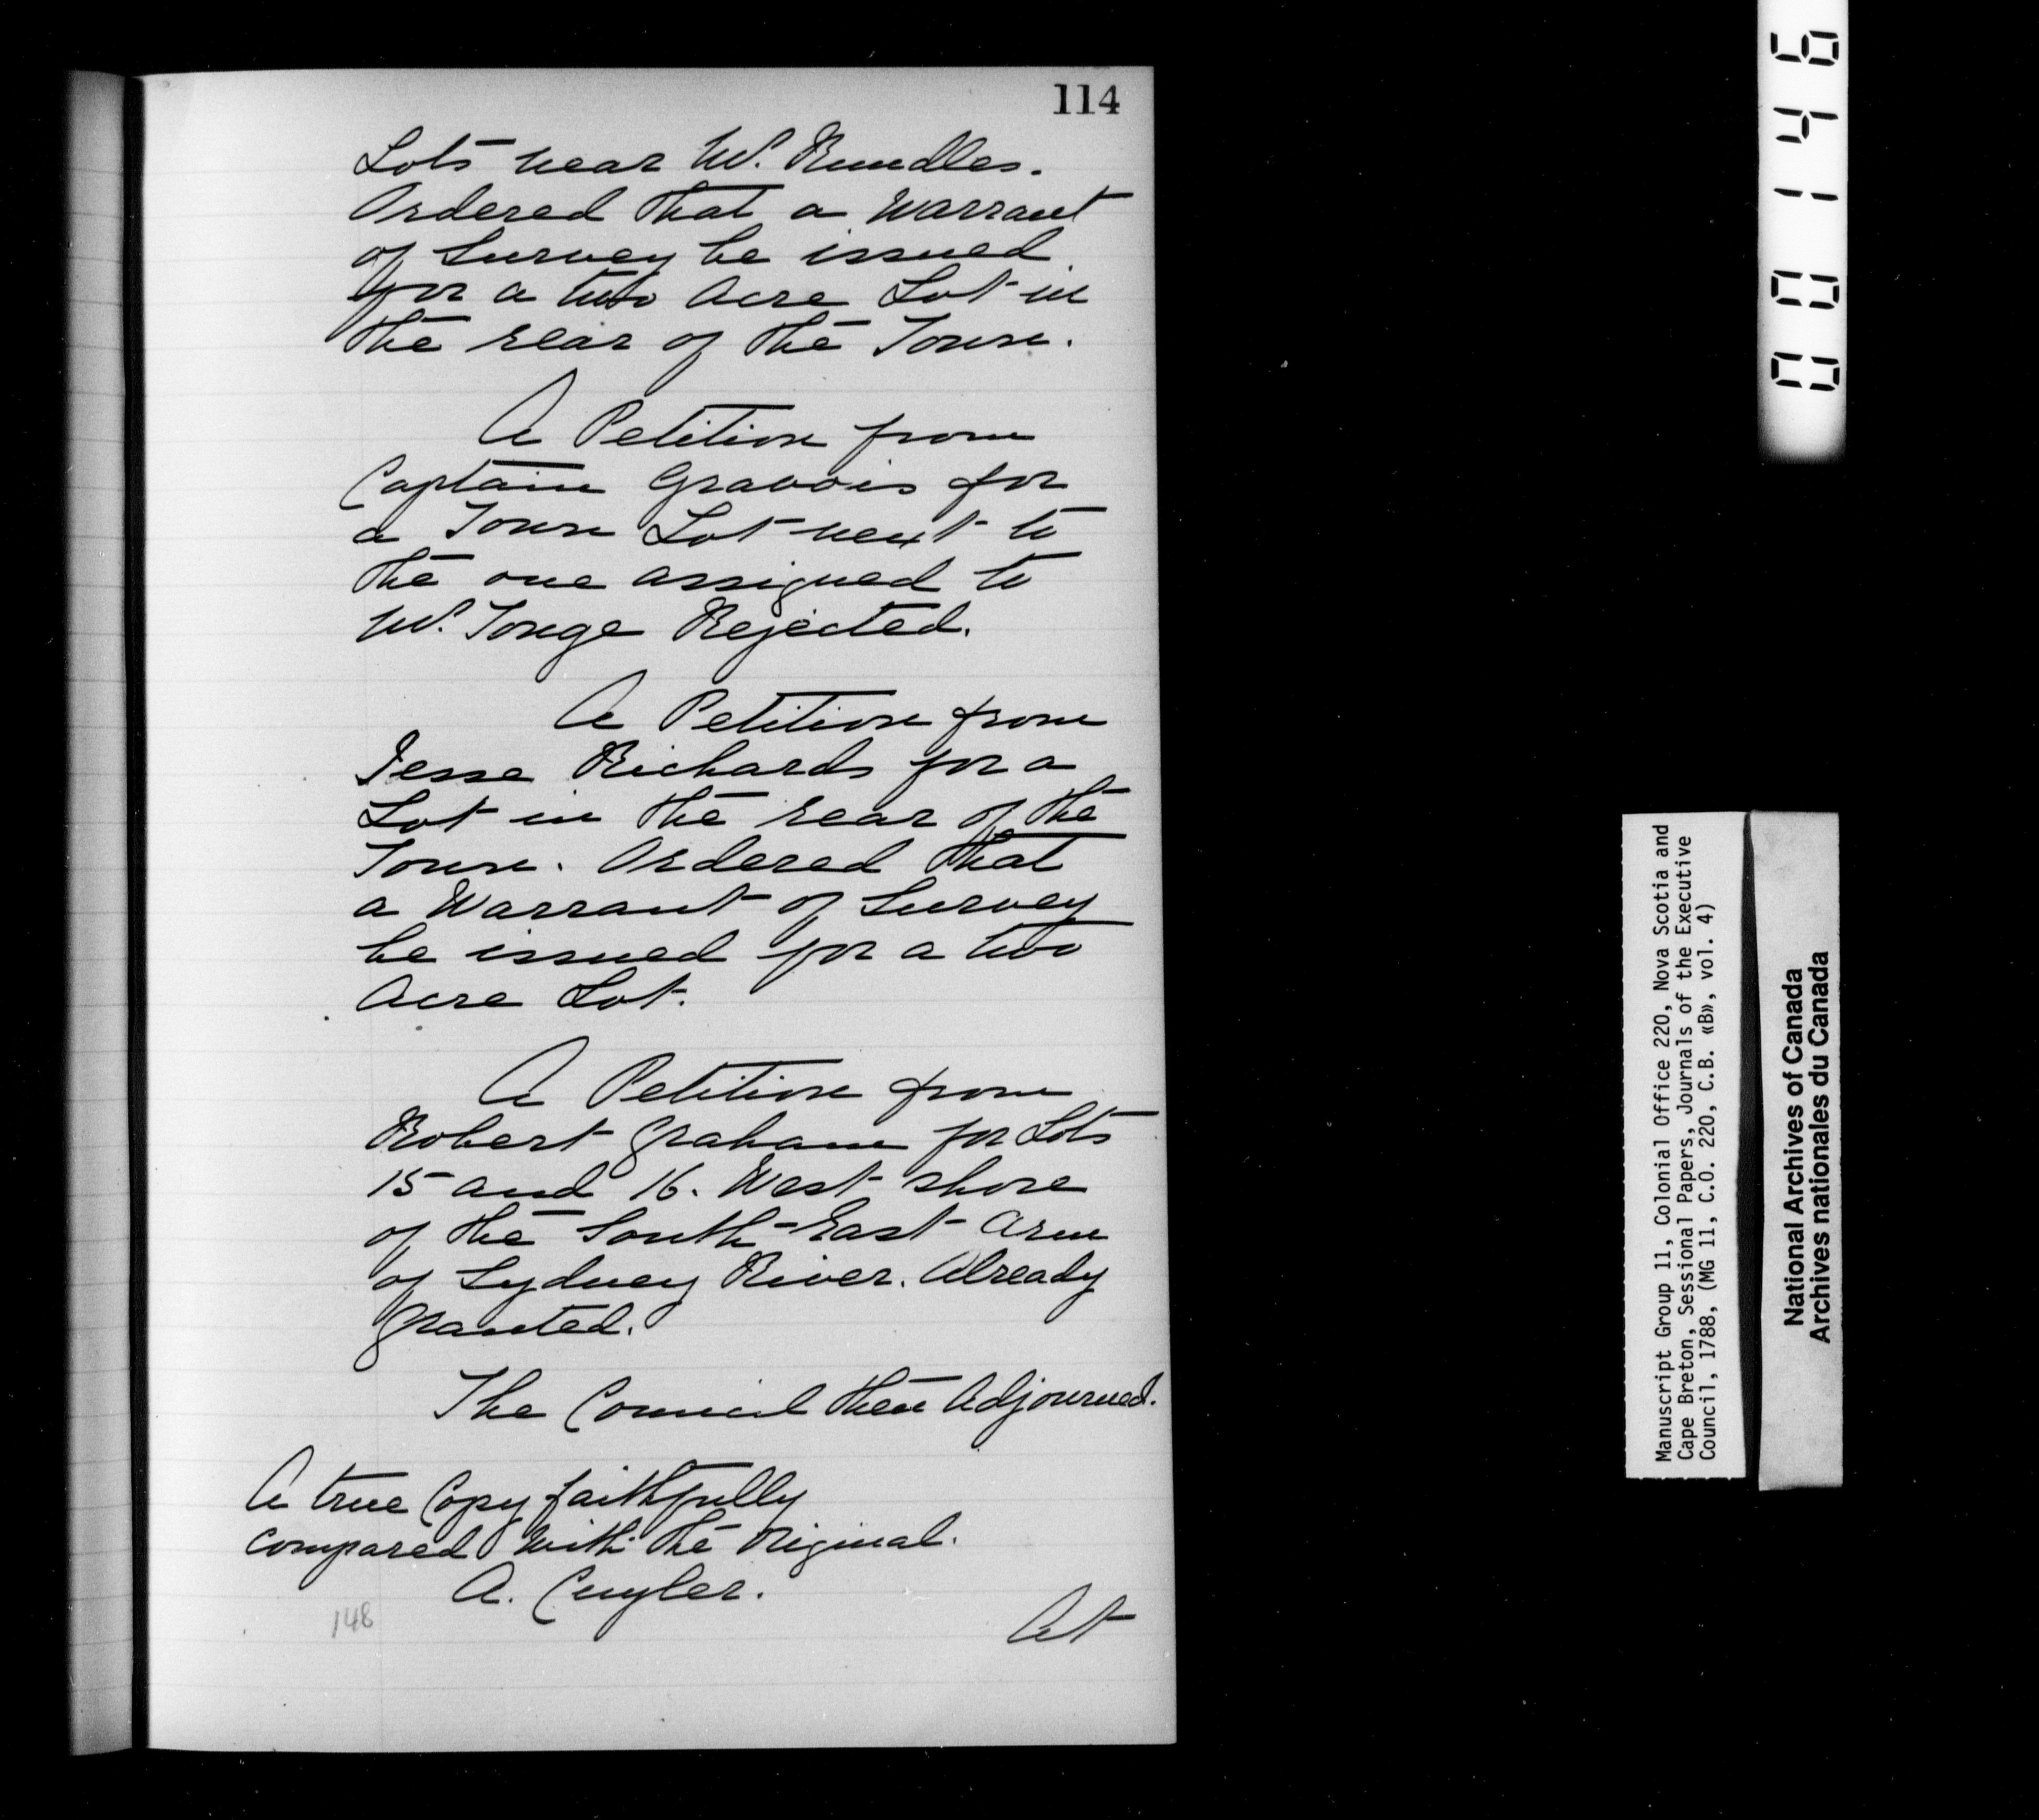 114
Lots near W. Rundles.
Ordered that a Warrant
of Survey be issued
for a two Acre Lot in
the rear of the Town.
A Petition from
Captain Gravois for
a Town Lot next to
the one assigned to
W. Tonge Rejected.
A Petition from
Jesse Richards for a
Lot in the rear of the
Town. Ordered that
a Warrant of Survey
be issued for a two
Acre Lot.
A Petition from
Robert Graham for Lots
15 and 16. West shore
of the South-East Arm
of Sydney River. Already
granted.
The Council then Adjourned.
A true Copy faithfully
compared with the Original.
A. Cuyler.
148
At
00146
Manuscript Group 11, Colonial Office 220, Nova Scotia and
Cape Breton, Sessional Papers, Journals of the Executive
Council, 1788, (MG 11, C.O. 220, C.B. «B», vol. 4)
National Archives of Canada
Archives nationales du Canada